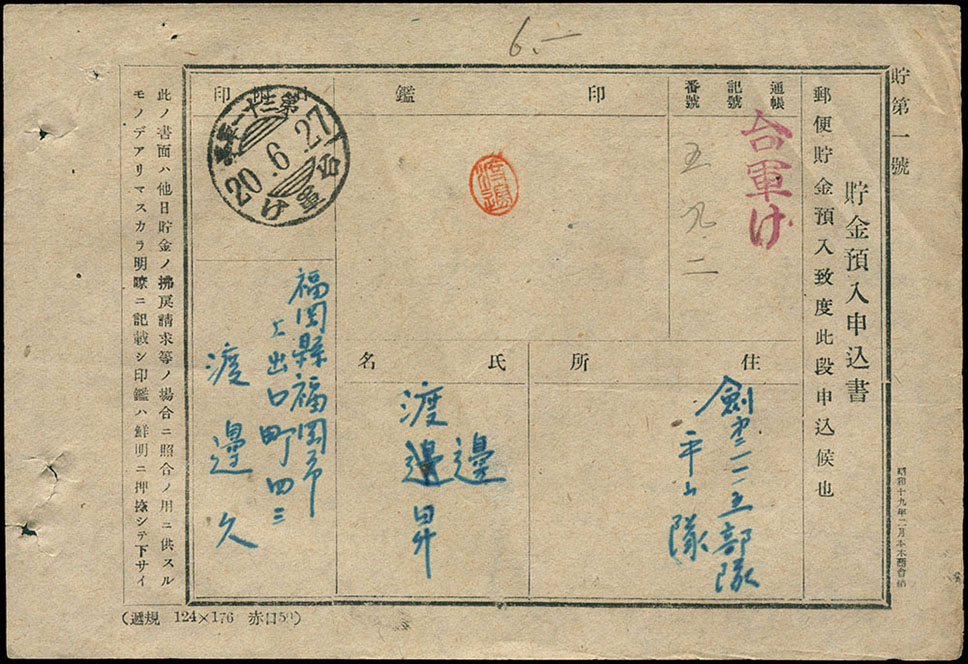 6.—
貯第一號
貯金預入申込書
郵便貯金預入致度此段申込候也
昭和十九年二月
通帳
記號
番號
台軍け
五九二
印鑑
渡邊
日附印
20.6.27
台軍け
住所
部隊
平山隊
氏名
邊
渡邊昇
福岡縣福岡市
上出口町四三
渡邊久
此ノ書面ハ他日貯金ノ拂戾請求等ノ場合ニ照合ノ用ニ供スル
モノデアリマスカラ明瞭ニ記載シ印鑑ハ鮮明ニ押捺シテ下サイ
(遞規 124×176 赤口50)